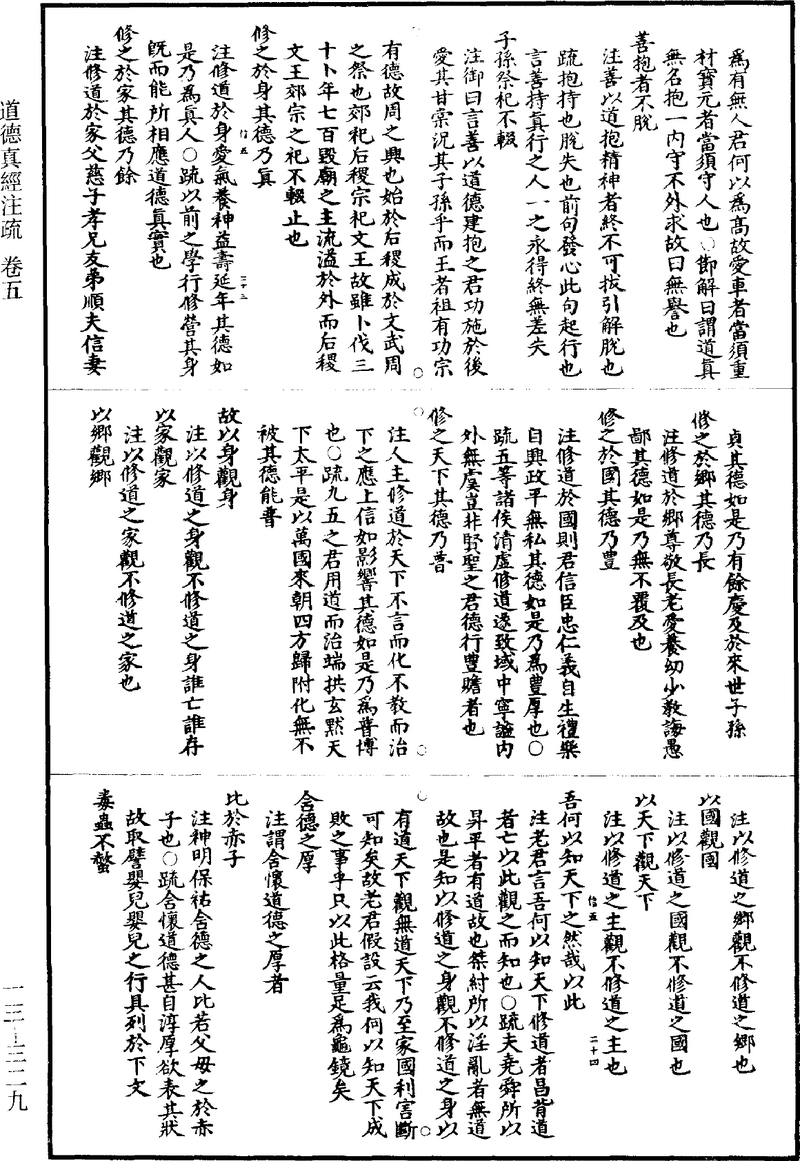 爲有無人君何以爲高故愛車者當須重
材寶元者當須守人也○節解曰謂道真
無名抱一內守不外求故曰無譽也
善抱者不脫
注善以道抱精神者終不可拔引解脫也
疏抱持也脫失也前句發心此句起行也
言善持真行之人一之永得終無差失
子孫祭祀不輟
注御曰言善以道德建抱之君功施於後
愛其甘棠況其子孫乎而王者祖有功宗
有德故周之興也始於后稷成於文武周
之祭也郊祀后稷宗祀文王故雖卜伐三
十卜年七百毀廟之主流溢於外而后稷
文王郊宗之祀不輟止也
修之於身其德乃真
信五
注修道於身愛氣養神益壽延年其德如
二十三
是乃爲真人○疏以前之學行修營其身
既而能所相應道德真實也
修之於家其德乃餘
注修道於家父慈子孝兄友弟順夫信妻
貞其德如是乃有餘慶及於來世子孫
修之於鄉其德乃長
注修道於鄉尊敬長老愛養幼少教誨愚
鄙其德如是乃無不覆及也
修之於國其德乃豐
注修道於國則君信臣忠仁義自生禮樂
自興政平無私其德如是乃爲豐厚也○
疏五等諸侯清虛修道遂致域中寧謐內
外無虞豈非賢聖之君德行豐贍者也
修之天下其德乃普
注人主修道於天下不言而化不教而治
下之應上信如影響其德如是乃爲普博
也○疏九五之君用道而治端拱玄默天
下太平是以萬國來朝四方歸附化無不
被其德能普
故以身觀身
注以修道之身觀不修道之身誰亡誰存
以家觀家
注以修道之家觀不修道之家也
以鄉觀鄉
注以修道之鄉觀不修道之鄉也
以國觀國
注以修道之國觀不修道之國也
以天下觀天下
注以修道之主觀不修道之主也
信五
二十四
吾何以知天下之然哉以此
注老君言吾何以知天下修道者昌背道
者亡以此觀之而知也○疏夫堯舜所以
昇平者有道故也桀紂所以淫亂者無道
故也是知以修道之身觀不修道之身以
有道天下觀無道天下乃至家國利害斷
可知矣故老君假設云我何以知天下成
敗之事乎只以此格量足爲龜鏡矣
含德之厚
注謂含懷道德之厚者
比於赤子
注神明保祐含德之人比若父母之於赤
子也○疏含懷道德甚自淳厚欲表其狀
故取譬嬰兒嬰兒之行具列於下文
毒蟲不螫
道德真經注疏 卷五
一三-三二九